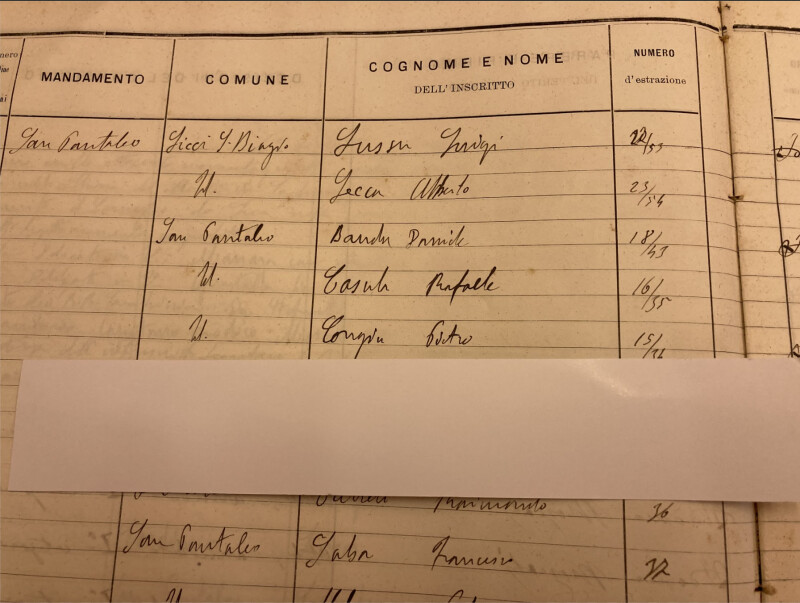 MANDAMENTO COMUNE COGNOME E NOME NUMERO
DELL'INSCRITTO d'estrazione
San Pantaleo Sicci S. Biagio Sussu Luigi 22/53
Id. Secca Alberto 23/54
San Pantaleo Dande Davide 18/43
Id. Casula Rafaele 16/35
Id. Congiu Pietro 15/
Raimondo 36
San Pantaleo Saba Francesco 32